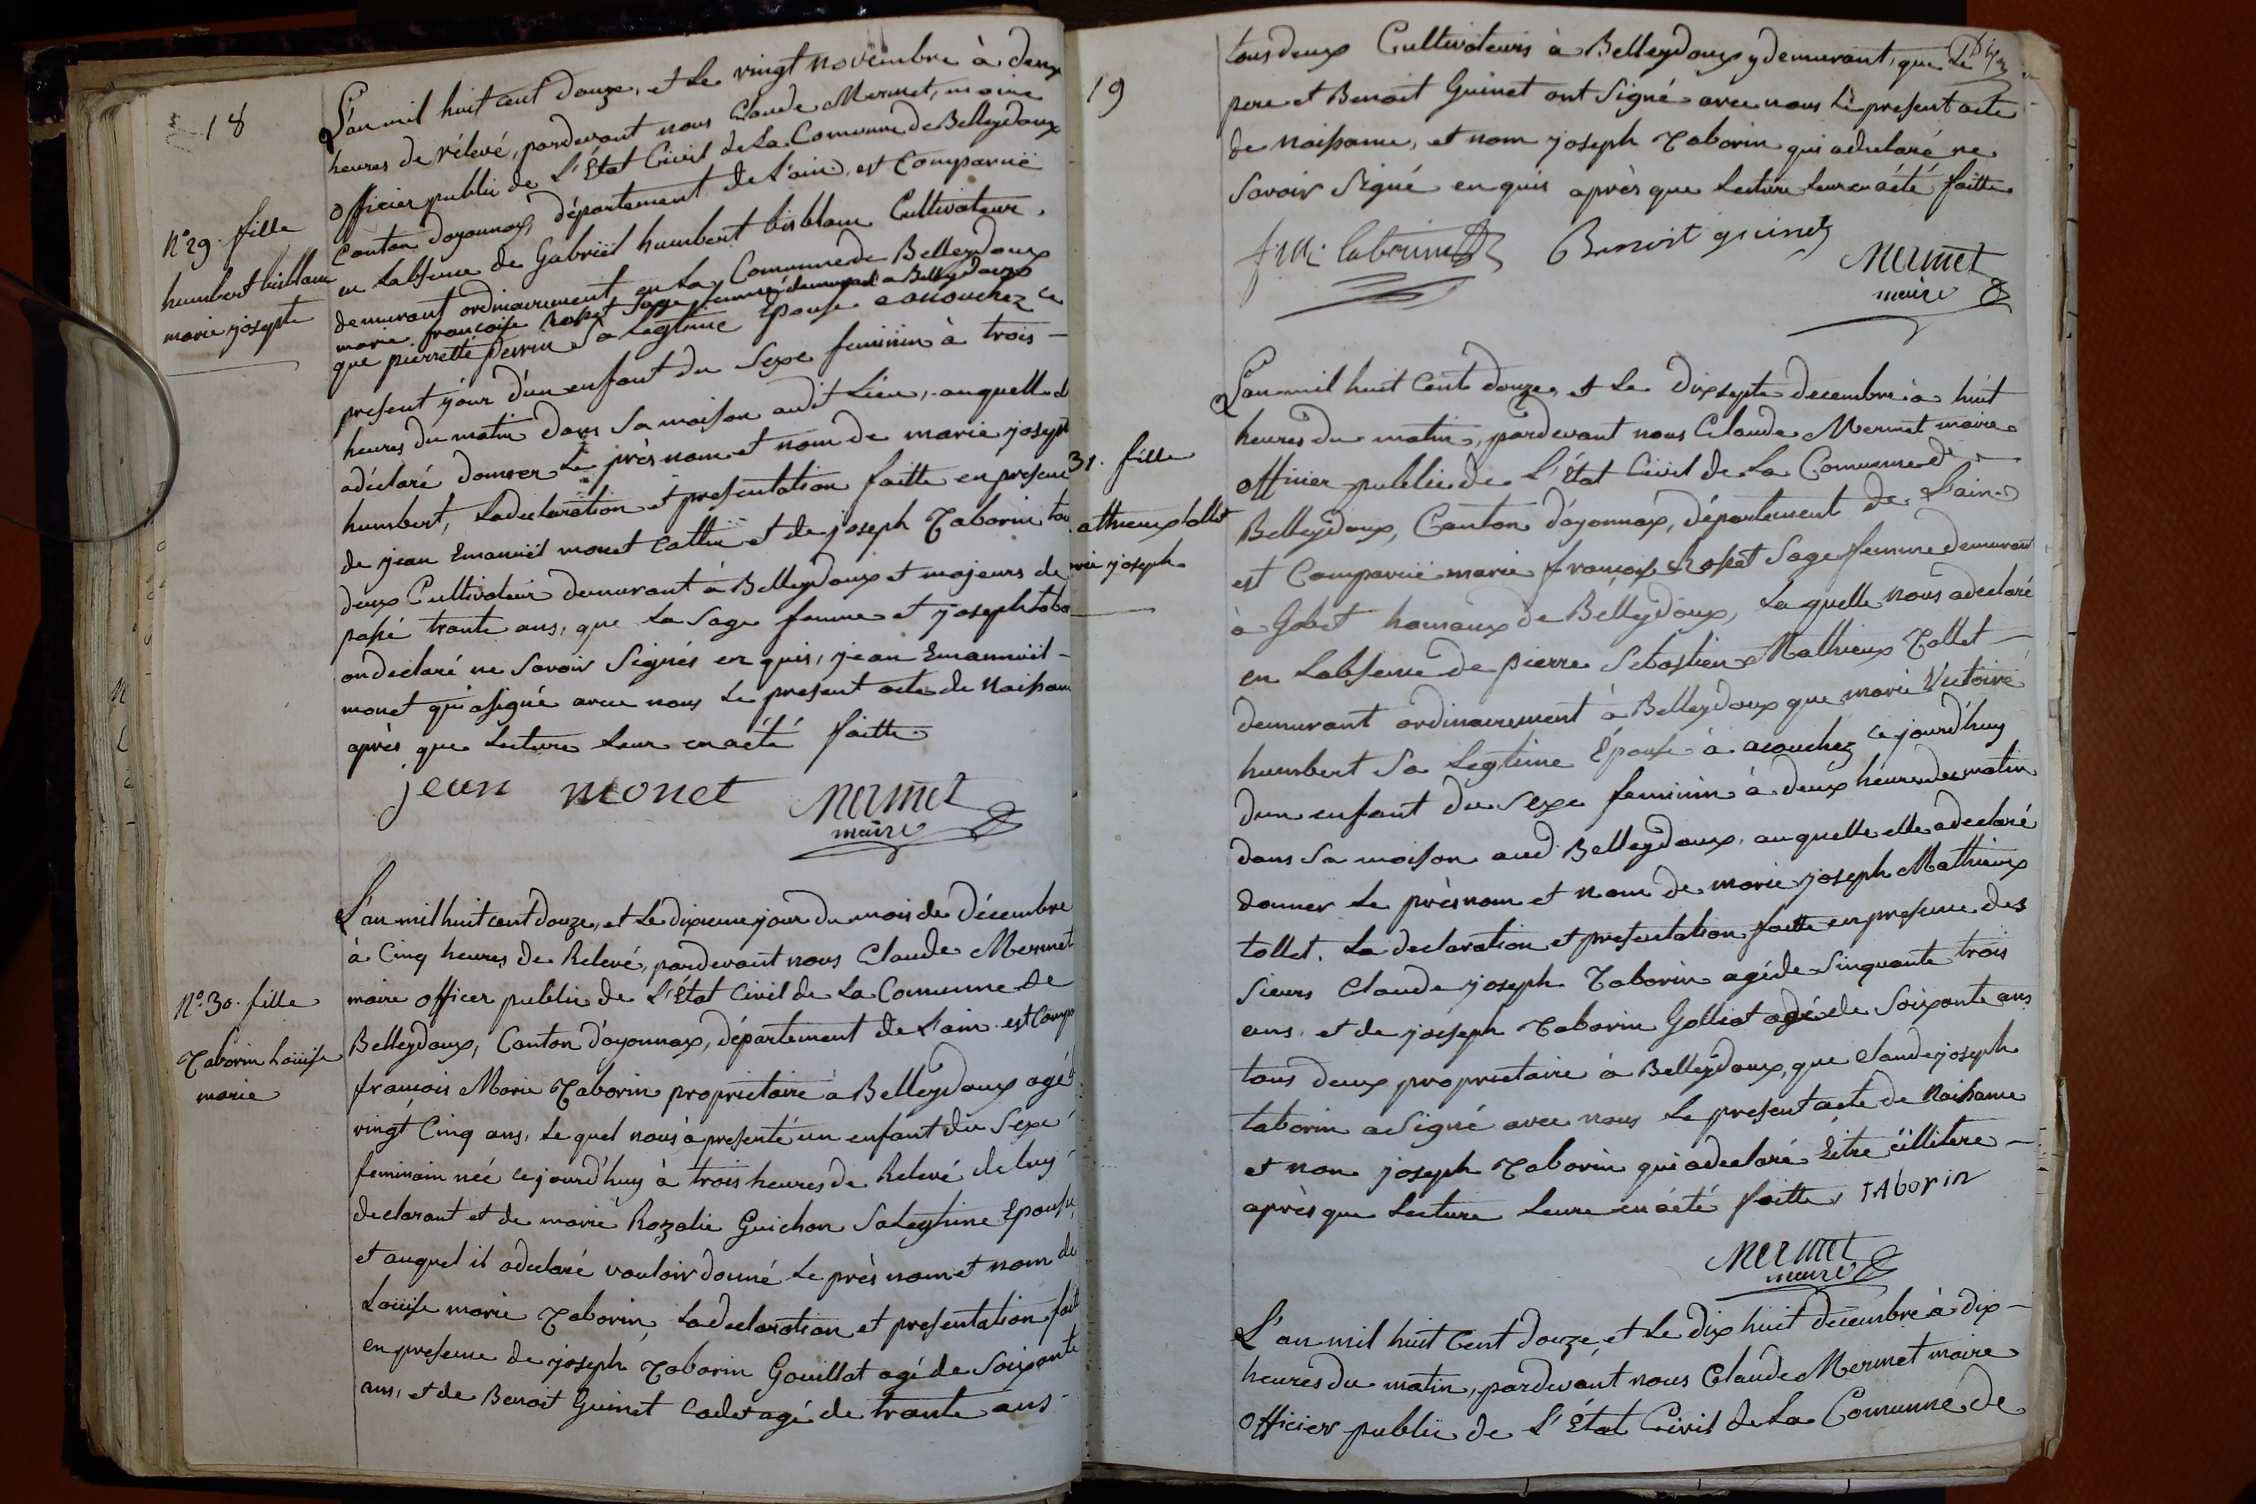 18
L'an mil huit cent douze, et Le vingt novembre à deux
heures de rélevé, pardevant nous Claude Mermet, maire
officier public de L'Etat Civil de La Comune de Belleydoux
Canton doyonnax, département de L'ain, est Comparuë
en Labsence de Gabriël humbert bisblanc Cultivateur,
demurant ordinairement en La Comune de Belleydoux
marie françoise Rosset sage femme demurant a Belleydoux
que pierrette perrin Sa Legtime Epouse a acouchez ce
present jour d'un enfant du Sexe feminin à trois –
heures du matin dans Sa maison audit Lieu, auquelle
adéclaré donner Le près nom et nom de marie joseph
humbert, Ladeclaration et presentation faitte en presence
de jean Emanuël monet Cattin et de joseph Taborin tou
deux Cultivateur demurant à Belleydoux et majeurs de
passé trante ans, que La Sage femme et joseph tabo
ondeclaré ne Savoir Signés en quis, jean Emanuël –
monet qui asigné avec nous Le present acte de Naissan
après que Lecture Leur en aété faitte
jean monet Mermet
maire
N° 29. fille
humbert bisblanc
marie joseph
L'an mil huit cent douze, et Le dixieme jour du mois de Décembre
à Cinq heures de Relevé, pardevant nous Claude Mermet
maire officer public de L'état Civil de La Comunne de
Belleydoux, Canton d'oyonnax, département de Lain est Comp
françois Marie Taborin proprietaire à Belleydoux agé
vingt Cinq ans, Le quel nous à presenté un enfant du Sexe
feminain néé cejourd'huy à trois heures de Relevé de luy
declarant et de marie Rozalie Guichon Salegtime Epouse,
et auquel il adeclaré vouloir donné Le près nom et nom de
Loüise marie Taborin, Ladeclaration et presentation fait
en presence de joseph Taborin Gouillat agé de Soixante
ans, et de Benoit Guinet Cadet agé de trante ans –
N°. 30. fille
Taborin Loüise
marie
19
tous deux Cultivateurs à Belleydoux y demurant, que Le
pere et Benoit Guinet ont Signé avec nous Le present acte
de Naissance, et nom joseph Taborin qui adeclaré ne
Savoir Signé en quis après que Lecture Leur en aété faitte
taborin Benoit guinet
Mermet
maire
L'an mil huit Cent douze, et Le dix sept decembre à huit
heures du matin, pardevant nous Claude Mermet maire
officier public de L'état Civil de La Comunne de
Belleydoux, Canton d'oyonnax, département de Lain
est Comparuë marie françoise Rosset Sage femme demurant
à Gobet hameaux de Belleydoux, La quelle nous adeclaré
en Labsence de pierre Sebastien Mathieux Tollet –
demurant ordinairement à Belleydoux que marie Victoire
humbert Sa Legtime Epouse à acouchéz cejourd'huy
dun enfant du Sexe feminin à deux heures du matin
dans Sa maison aud. Belleydoux, auquelle elle adeclaré
donner Le près nom et nom de marie joseph Mathieux
tollet. La declaration et presentation faitte en presence des
Sieurs Claude joseph Taborin agé de Sinquante trois
ans, et de joseph Taborin Golliat agé de Soixante ans
tous deux proprietaire à Belleydoux, que Claude joseph
taborin a Signé avec nous Le present acte de Naissance
et non joseph Taborin qui adeclaré Être éillitere –
après que Lecture Leure en aété faitte TAborin
Mermet
maire
31. fille
athieux tollet
rie joseph
L'an mil huit Cent douze, et Le dix huit decembre à dix –
heures du matin, pardevant nous Claude Mermet maire
officier public de L'état Civil de La Comunne de